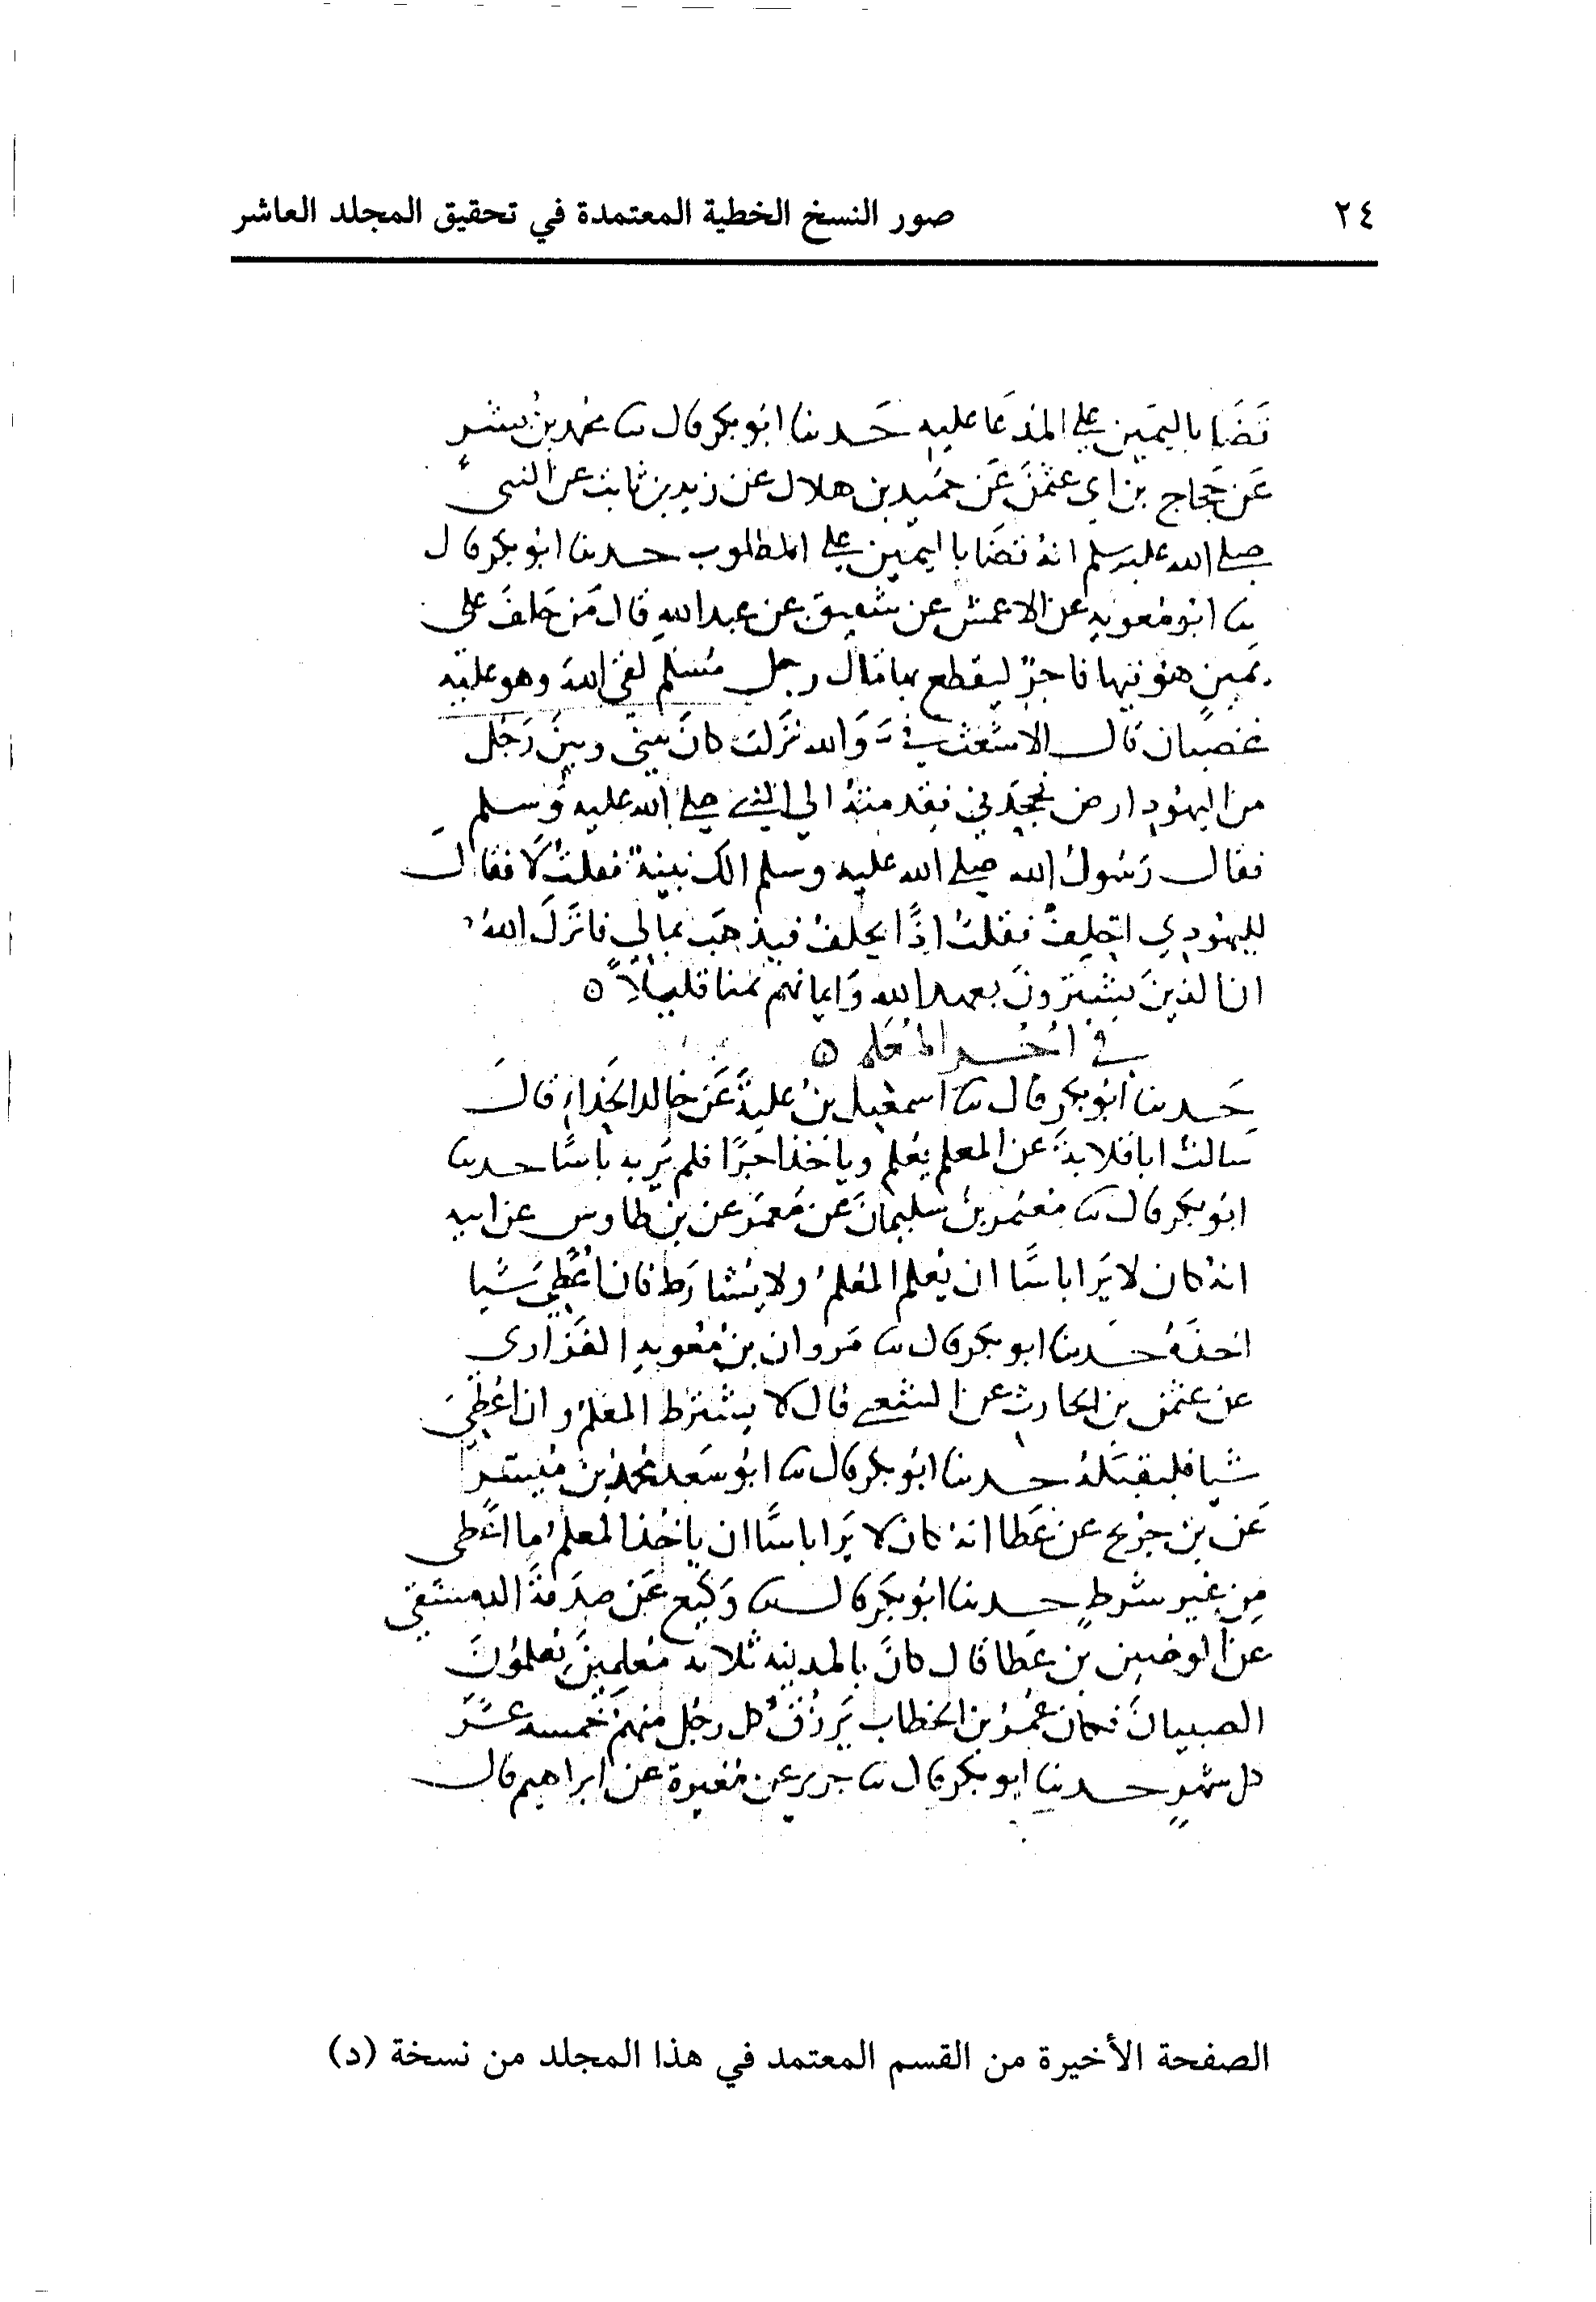 ٢٤
صور النسخ الخطية المعتمدة في تحقيق المجلد العاشر
قضا باليمين على المدعا عليه حدثنا ابو بكر قال نا محمد بن بشر
عن حجاج بن ابي عثمن عن حميد بن هلال عن زيد بن ثابت عن النبي
صلى الله عليه وسلم انه قضا باليمين على المطلوب حدثنا ابو بكر قال
نا ابو معويه عن الاعمش عن شقيق عن عبد الله قال من حلف على
يمين هو فيها فاجر ليقطع بها مال رجل مسلم لقي الله وهو عليه
غضبان قال الاشعث في والله نزلت كان بيني وبين رجل
من اليهود ارض فجحدني فقدمته الي النبي صلى الله عليه وسلم
فقال رسول الله صلى الله عليه وسلم الك بينة فقلت لا فقال
لليهودي احلف فقلت اذًا يحلف فيذهب بمالي فانزل الله
ان الذين يشترون بعهد الله وايمانهم ثمنا قليلاً ه
في اجر المعلم ه
حدثنا ابو بكر قال نا اسمعيل بن علية عن خالد الحذاء قال
سالت ابا قلابة عن المعلم يعلم وياخذ اجرًا فلم ير به باسًا حدثنا
ابو بكر قال نا معتمر بن سليمان عن معمر عن بن طاوس عن ابيه
انه كان لا يرا باسًا ان يعلم المعلم ولا يشارط فان اعطي شيا
اخذه حدثنا ابو بكر قال نا مروان بن معويه الفزارى
عن عثمن بن الحارث عن الشعبي قال لا يشترط المعلم وان اعطي
شيا فليقبله حدثنا ابو بكر قال نا ابو سعد محمد بن ميسر
عن بن جريج عن عطا انه كان لا يرا باسًا ان ياخذ المعلم ما اعطى
من غير شرط حدثنا ابو بكر قال نا وكيع عن صدقة الدمشقي
عن الوضين بن عطا قال كان بالمدينه ثلاثه معلمين يعلمون
الصبيان فكان عمر بن الخطاب يرزق كل رجل منهم خمسه عشر
كل شهر حدثنا ابو بكر قال نا جرير عن مغيرة عن ابراهيم قال
الصفحة الأخيرة من القسم المعتمد في هذا المجلد من نسخة (د)